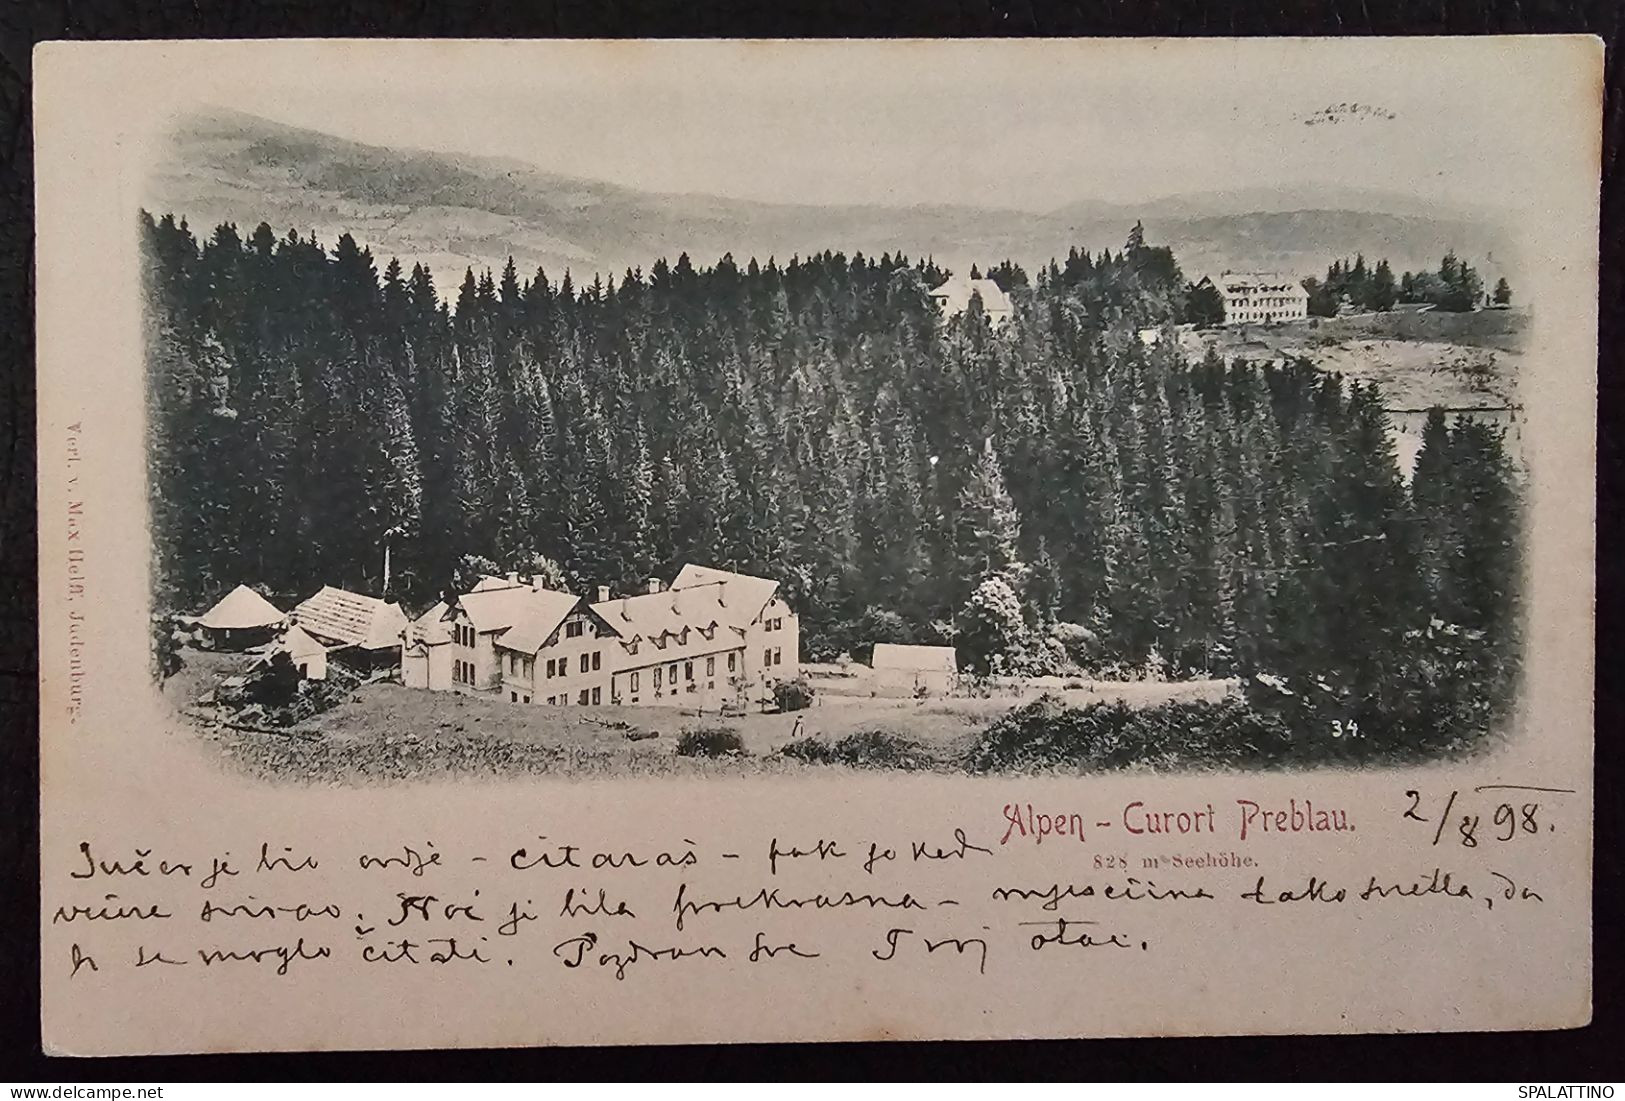 Verl. v. Max Helff, Judenburg.
34.
Alpen - Curort Preblau.
828 m Seehöhe.
2/8 98.
Jučer je bio ovdje - citaraš - pak je kod
večere svirao. Noć je bila prekrasna - mjesečina tako svietla, da
bi se moglo čitati. Pozdrav sve Tvoj otac.
SPALATTINO